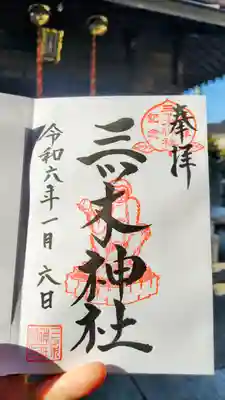 奉拝
三ツ木神社
令和六年一月六日